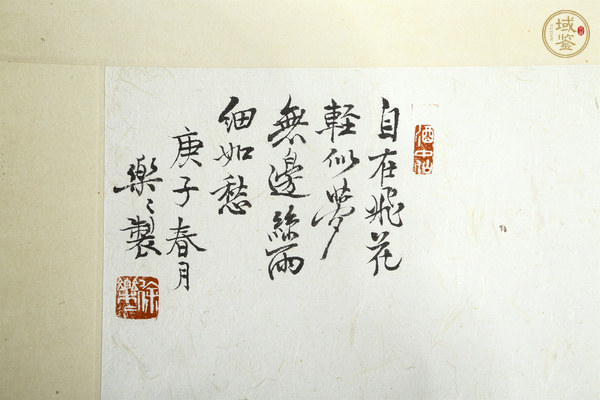 自在飛花
軽似夢
無邊絲雨
細如愁
庚子春月
樂〻製
徐樂樂
域鉴